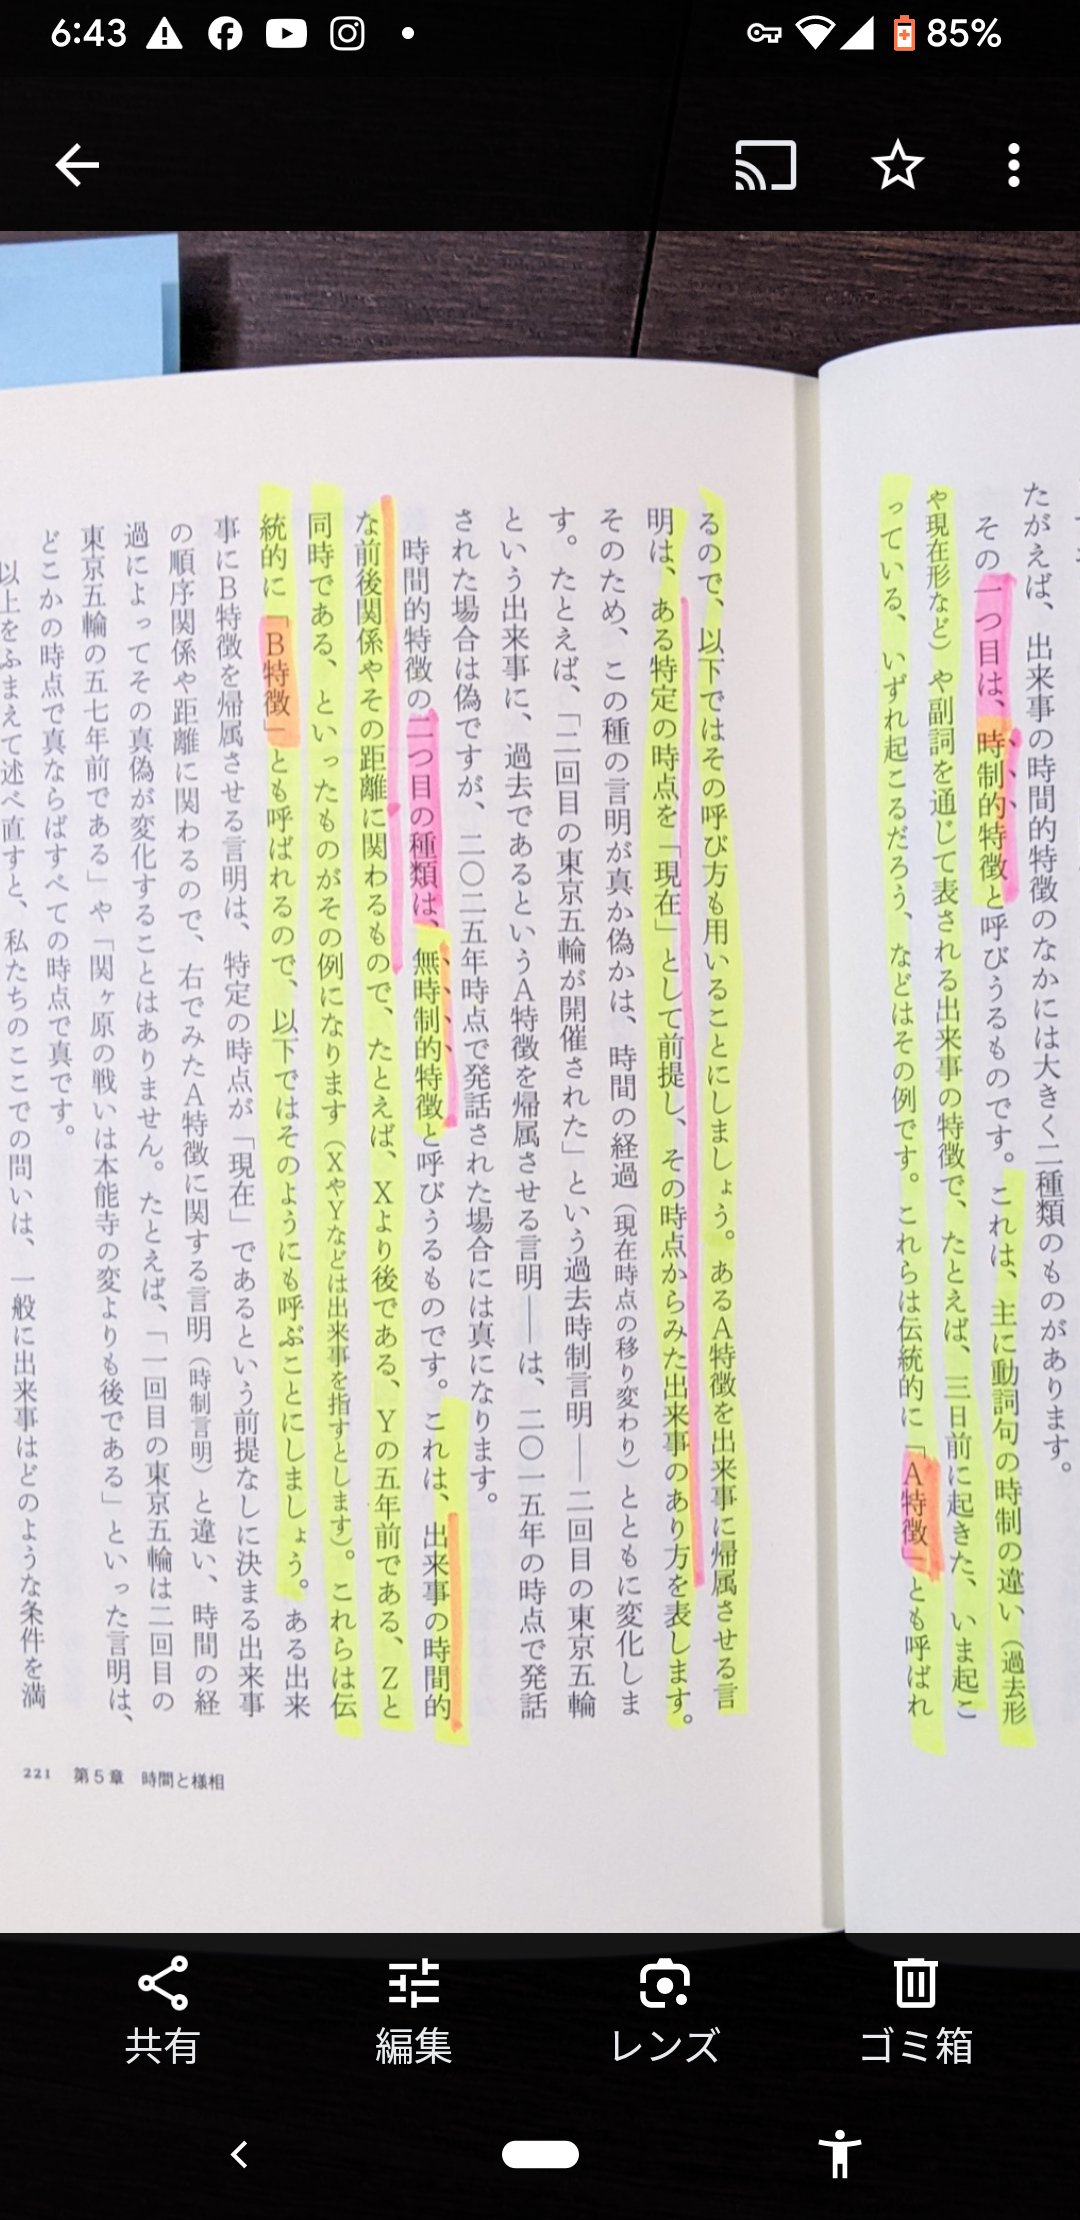 6:43
85%
たがえば、出来事の時間的特徴のなかには大きく二種類のものがあります。
その一つ目は、時制的特徴と呼びうるものです。これは、主に動詞句の時制の違い（過去形
や現在形など）や副詞を通じて表される出来事の特徴で、たとえば、三日前に起きた、いま起こ
っている、いずれ起こるだろう、などはその例です。これらは伝統的に「A特徴」とも呼ばれ
るので、以下ではその呼び方も用いることにしましょう。あるA特徴を出来事に帰属させる言
明は、ある特定の時点を「現在」として前提し、その時点からみた出来事のあり方を表します。
そのため、この種の言明が真か偽かは、時間の経過（現在時点の移り変わり）とともに変化しま
す。たとえば、「二回目の東京五輪が開催された」という過去時制言明――二回目の東京五輪
という出来事に、過去であるというA特徴を帰属させる言明――は、二〇一五年の時点で発話
された場合は偽ですが、二〇二五年時点で発話された場合には真になります。
時間的特徴の二つ目の種類は、無時制的特徴と呼びうるものです。これは、出来事の時間的
な前後関係やその距離に関わるもので、たとえば、Xより後である、Yの五年前である、Zと
同時である、といったものがその例になります（XやYなどは出来事を指すとします）。これらは伝
統的に「B特徴」とも呼ばれるので、以下ではそのようにも呼ぶことにしましょう。ある出来
事にB特徴を帰属させる言明は、特定の時点が「現在」であるという前提なしに決まる出来事
の順序関係や距離に関わるので、右でみたA特徴に関する言明（時制言明）と違い、時間の経
過によってその真偽が変化することはありません。たとえば、「一回目の東京五輪は二回目の
東京五輪の五七年前である」や「関ヶ原の戦いは本能寺の変よりも後である」といった言明は、
どこかの時点で真ならばすべての時点で真です。
以上をふまえて述べ直すと、私たちのここでの問いは、一般に出来事はどのような条件を満
221 第5章 時間と様相
共有
編集
レンズ
ゴミ箱